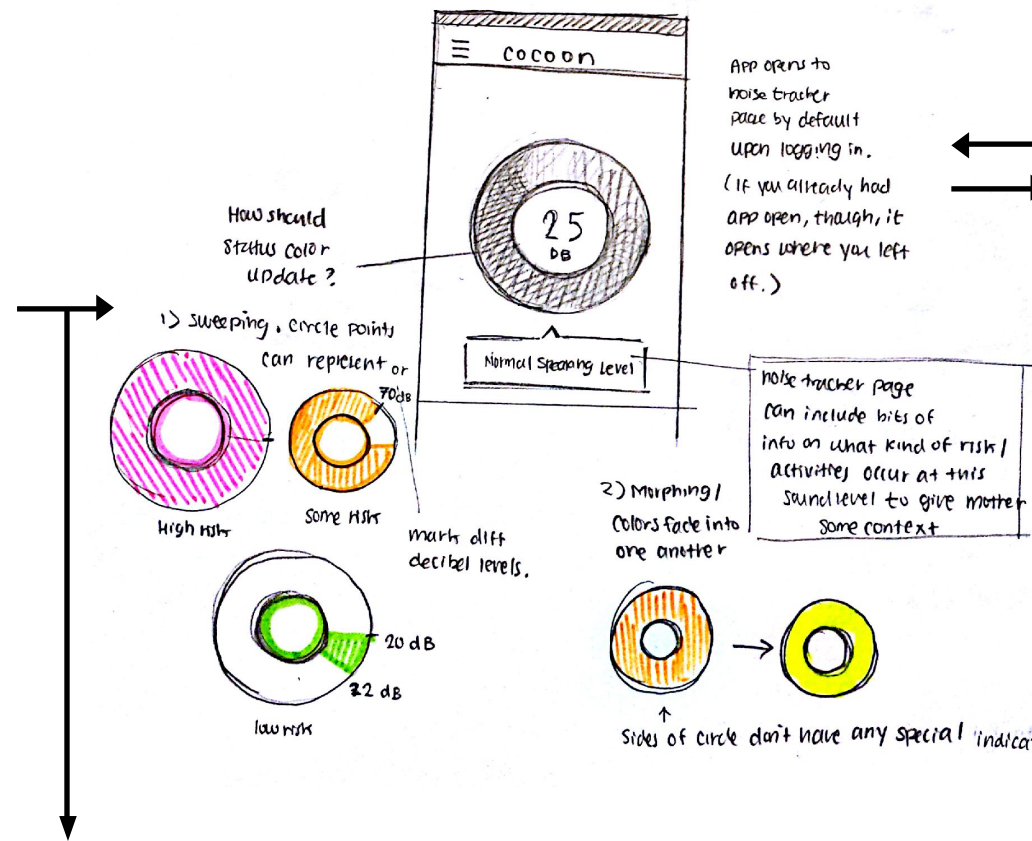 cocoon
25
DB
Normal Speaking Level
App opens to
noise tracker
page by default
upon logging in.
(If you already had
app open, though, it
opens where you left
off.)
How should
status color
update?
1) sweeping. circle points
can represent or
70dB
mark diff
decibel levels.
High risk
some risk
20 dB
22 dB
low risk
noise tracker page
can include bits of
info on what kind of risk/
activities occur at this
sound level to give mother
some context
2) Morphing/
colors fade into
one another
sides of circle don't have any special indica